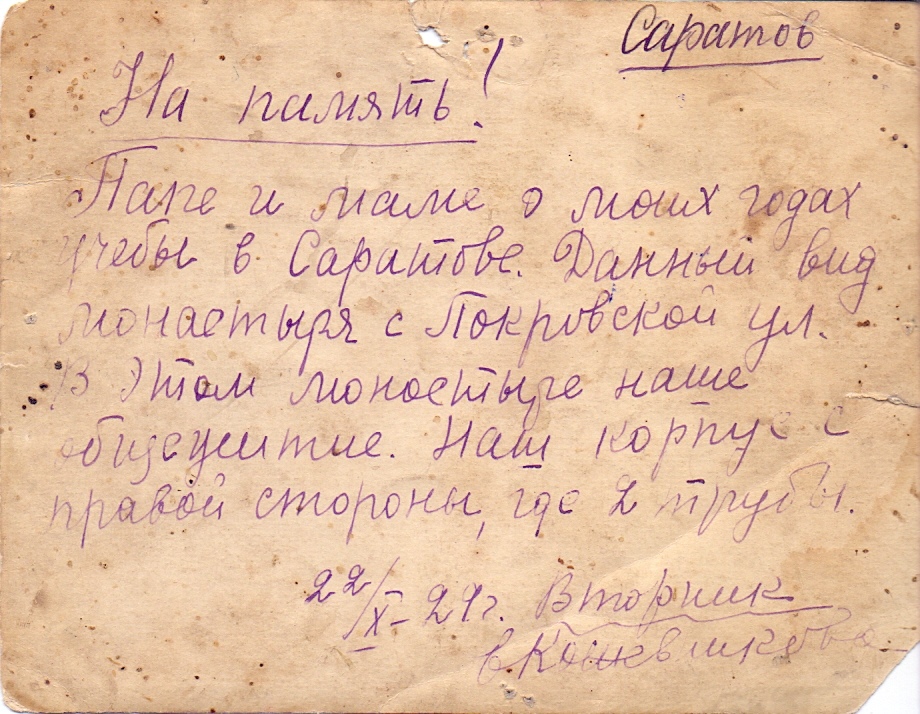 Саратов
На память!
Папе и маме о моих годах
учебы в Саратове. Данный вид
монастыря с Покровской ул.
В этом моностыре наше
общежитие. Наш корпус с
правой стороны, где 2 трубы.
22/X-29г. Вторник